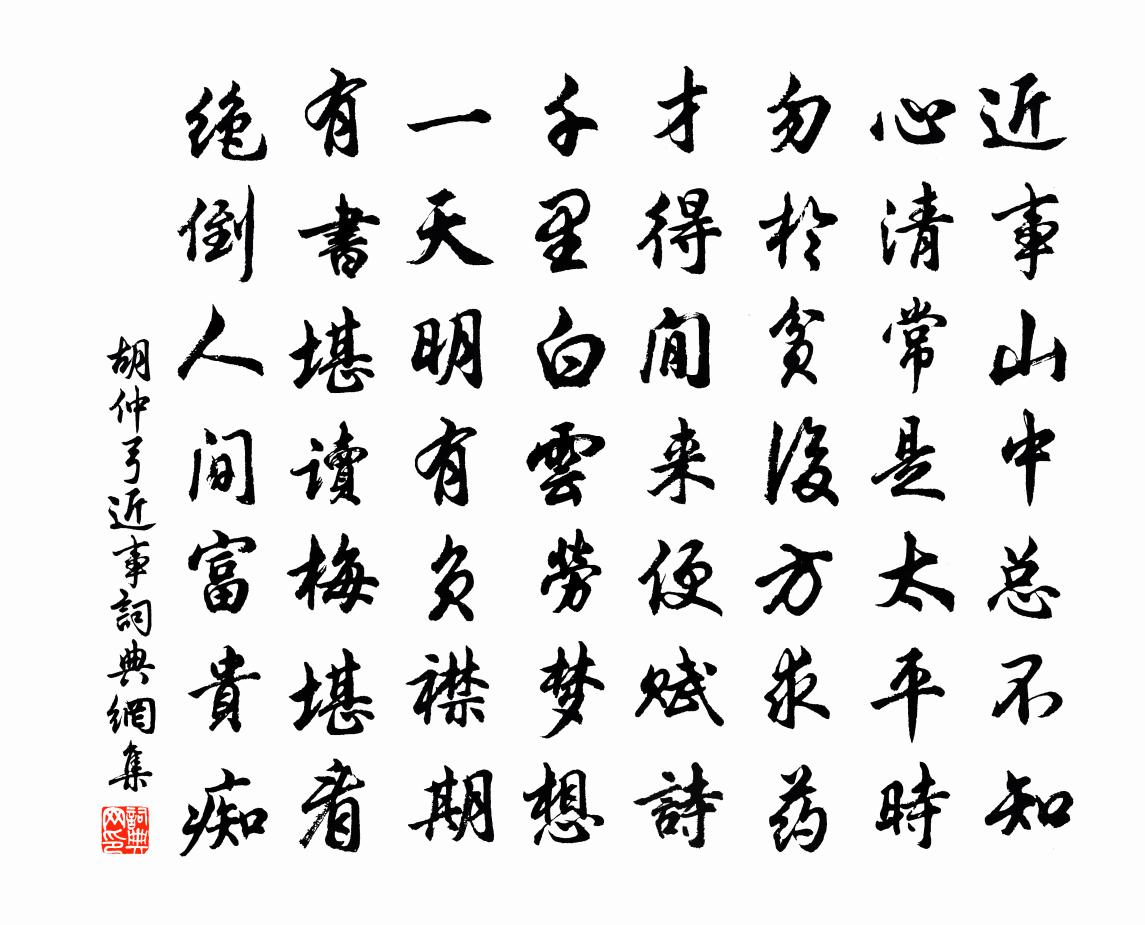 近事山中总不知
心清常是太平时
勿於贫後方求药
才得閒来便赋詩
千里白雲劳梦想
一天明有负襟期
有書堪讀梅堪看
绝倒人间富貴痴
胡仲弓近事詞典網集
詞典网印